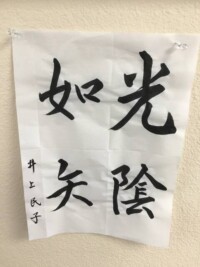 光陰
如矢
井上民子